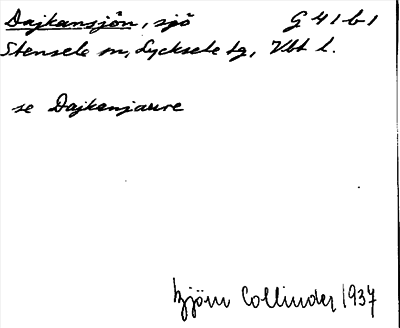 Dajkansjön, sjö G 41 b 1
Stensele sn, Lycksele tg, Vbt l.
se Dajkanjaure
Björn Collinder 1937